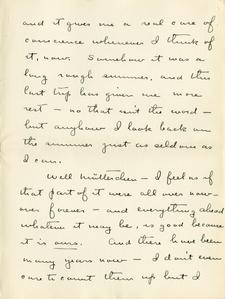 and it gives me a real case of
conscience whenever I think of
it, now. Somehow it was a
long rough summer, and this
last trip has given me more
rest – no that isn't the word –
but anyhow I look back on
the summer just as seldom as
I can.
Well Mütterchen – I feel as if
that part of it were all over now –
over forever – and everything ahead
whatever it may be, is good because
it is ours. And there have been
many years now – I don't even
care to count them up but I